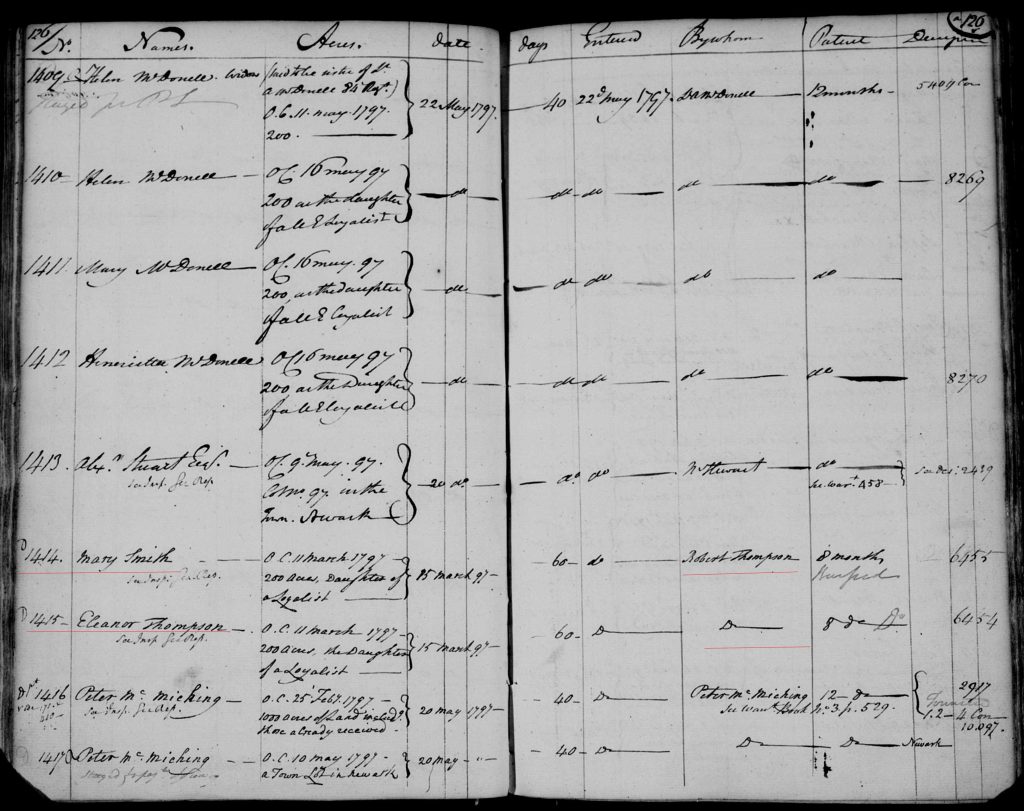 126 126
No. Names. Acres. date days Entered By whom Patent
1409 Helen McDonell Widow (said to be sister of Lt.
a McDonell 84 Regt.)
O.C. 11. may 1797. 22 May 1797. 40 22d may 1797. McDonell 12 months 5409 Con
200.
1410 Helen McDonell O.C. 16 may 97
200 as the daughter do do do do do 8269
of a U E Loyalist
1411. Mary McDonell O.C. 16 may. 97
200, as the daughter do do do do do
of a U E Loyalist
1412 Henrietta McDonell O.C. 16 may 97
200 as the Daughter do do do do do 8270
of a U E Loyalist
1413. Alexr. Stuart Esqr. O.C. 9 may. 97. 20 do. do do Wm Stewart do See Des: 2439
See Insp. Gen Rep. in the See Wart. 458
Town. Newark
1414. Mary Smith O.C. 11 March 1797 15 march 97 60 do Robert Thompson 8 months 6455
See Insp. Gen Rep. 200 Acres, Daughter of
a Loyalist
1415 Eleanor Thompson O.C. 11 March 1797 15 March 97 60 Do Do 8 Do Do 6454
See Insp. Gen Rep. 200 Acres, the Daughter
of a Loyalist
1416 Peter McMicking O.C. 25 Feby. 1797 20 May 1797 40 Do Peter McMicking 12 Do 2917
See Insp. Gen Rep. 1000 acres of Land includg. See Wart. Book No 3 p. 529. 1.2 4 Con
those already received. 10.097.
1417 Peter McMicking O.C. 10 May 1797 20 May 40 Do Do Do Newark
a Town Lot in Newark